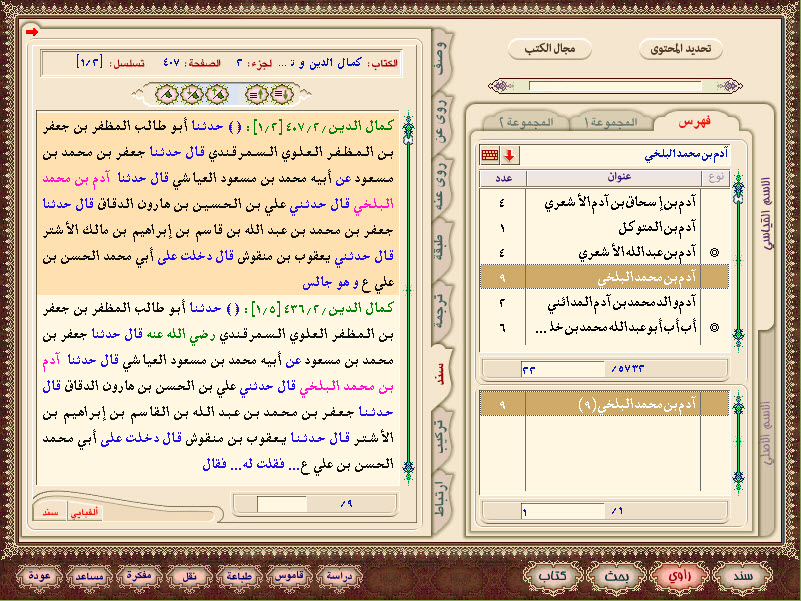 تحديد المحتوى
مجال الكتب
فهرس
المجموعة ١
المجموعة ٢
آدم بن محمد البلخي
نوع
عنوان
عدد
آدم بن إسحاق بن آدم الأشعري ٤
آدم بن المتوكل ١
آدم بن عبدالله الأشعري ٤
آدم بن محمد البلخي ٩
آدم والد محمد بن آدم المدائني ٢
أب أب أبو عبدالله محمد بن خلـ ... ٦
/٥٧٣٢
٢٢
آدم بن محمد البلخي (٩) ٩
/١
١
الاسم القياسي
الاسم الأصلي
وصف
روى عن
روى عنه
طبقة
ترجمة
سند
تركيب
ارتباط
الكتاب: كمال الدين و تـ ... لجزء: ٢ الصفحة: ٤٠٧ تسلسل: [١/٢]
كمال الدين/٤٠٧/٢ [١/٢]: ( ) حدثنا أبو طالب المظفر بن جعفر
بن المظفر العلوي السمرقندي قال حدثنا جعفر بن محمد بن
مسعود عن أبيه محمد بن مسعود العياشي قال حدثنا آدم بن محمد
البلخي قال حدثني علي بن الحسين بن هارون الدقاق قال حدثنا
جعفر بن محمد بن عبد الله بن قاسم بن إبراهيم بن مالك الأشتر
قال حدثني يعقوب بن منقوش قال دخلت على أبي محمد الحسن بن
علي ع و هو جالس
كمال الدين/٤٣٦/٢ [١/٥]: ( ) حدثنا أبو طالب المظفر بن جعفر
بن المظفر العلوي السمرقندي رضي الله عنه قال حدثنا جعفر بن
محمد بن مسعود عن أبيه محمد بن مسعود العياشي قال حدثنا آدم
بن محمد البلخي قال حدثني علي بن الحسن بن هارون الدقاق قال
حدثنا جعفر بن محمد بن عبد الله بن القاسم بن إبراهيم بن
الأشتر قال حدثنا يعقوب بن منقوش قال دخلت على أبي محمد
الحسن بن علي ع... فقلت له... فقال
/٩
ألفبايي
سند
سند
راوي
بحث
كتاب
دراسة
قاموس
طباعة
نقل
مفكرة
مساعد
عودة